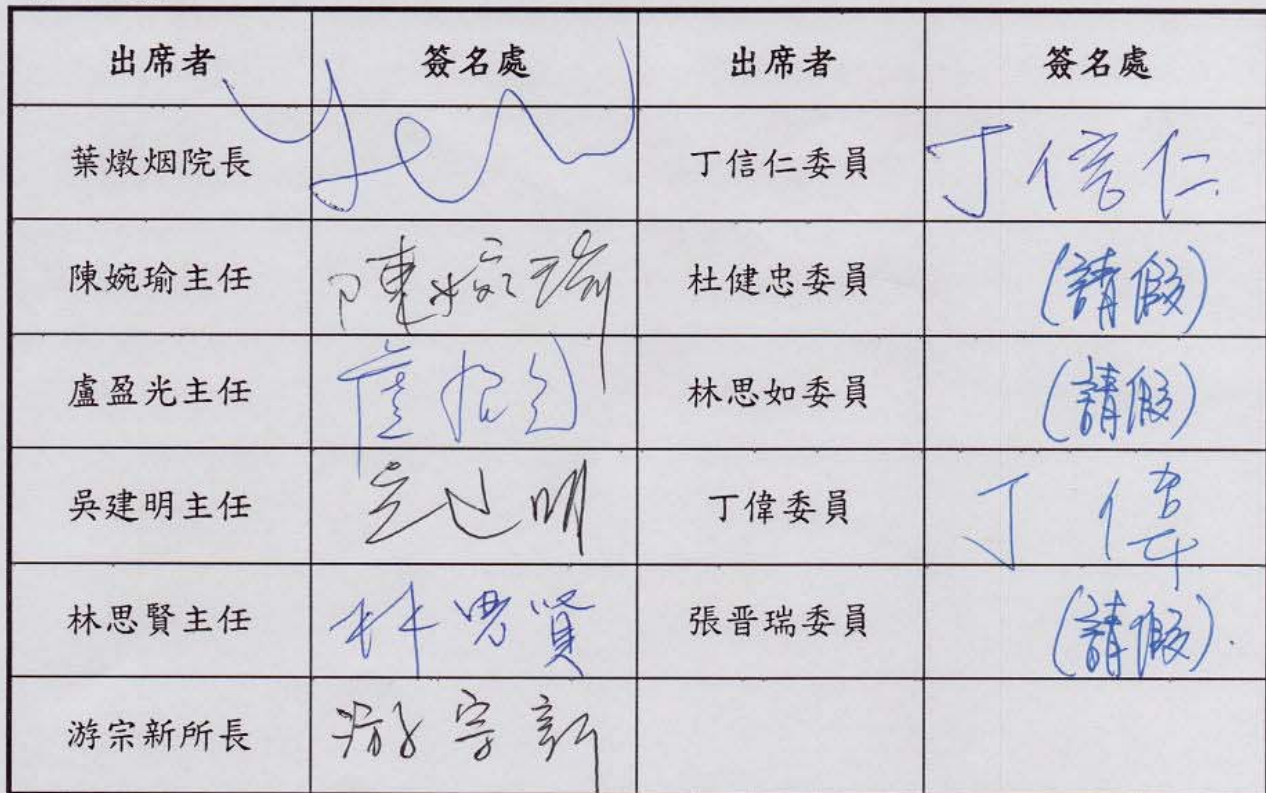 出席者 簽名處 出席者 簽名處
葉燉烟院長 Yen 丁信仁委員 丁信仁
陳婉瑜主任 陳婉瑜 杜健忠委員 (請假)
盧盈光主任 林思如委員 (請假)
吳建明主任 吳建明 丁偉委員 丁偉
林思賢主任 林思賢 張晋瑞委員 (請假)
游宗新所長 游宗新